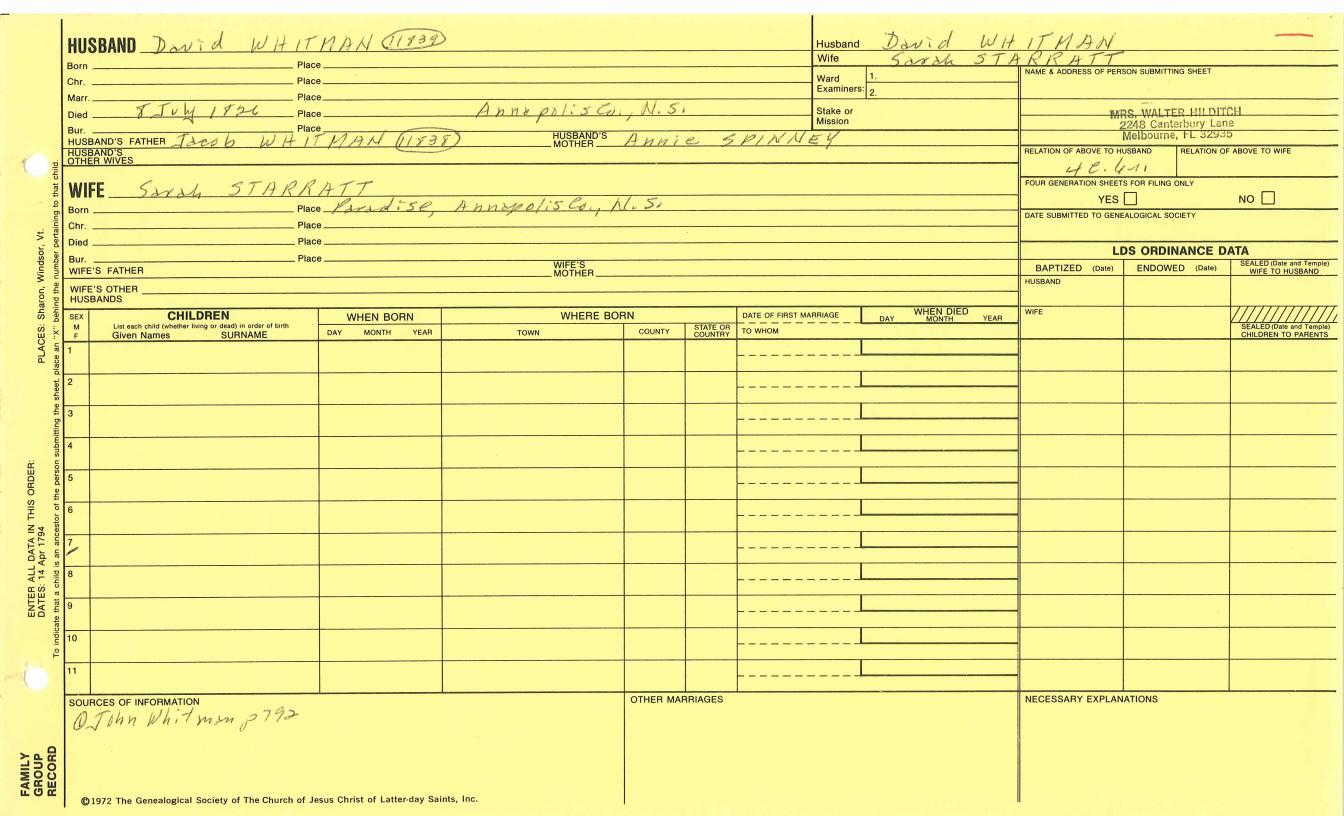 HUSBAND David WHITMAN (11839)
Husband David WHITMAN
Wife Sarah STARRATT
Born Place
Chr. Place
Marr. Place
Died 8 July 1826 Place Annapolis Co., N.S.
Bur. Place
HUSBAND'S FATHER Jacob WHITMAN (11838) HUSBAND'S MOTHER Annie SPINNEY
HUSBAND'S OTHER WIVES
Ward Examiners: 1.
2.
Stake or Mission
NAME & ADDRESS OF PERSON SUBMITTING SHEET
MRS. WALTER HILDITCH
2248 Canterbury Lane
Melbourne, FL 32935
RELATION OF ABOVE TO HUSBAND RELATION OF ABOVE TO WIFE
FOUR GENERATION SHEETS FOR FILING ONLY
YES NO
DATE SUBMITTED TO GENEALOGICAL SOCIETY
WIFE Sarah STARRATT
Born Place Paradise, Annapolis Co., N.S.
Chr. Place
Died Place
Bur. Place
WIFE'S FATHER WIFE'S MOTHER
WIFE'S OTHER HUSBANDS
LDS ORDINANCE DATA
BAPTIZED (Date) ENDOWED (Date) SEALED (Date and Temple) WIFE TO HUSBAND
HUSBAND
WIFE
SEALED (Date and Temple) CHILDREN TO PARENTS
SEX M F
CHILDREN
List each child (whether living or dead) in order of birth
Given Names SURNAME
WHEN BORN
DAY MONTH YEAR
WHERE BORN
TOWN COUNTY STATE OR COUNTRY
DATE OF FIRST MARRIAGE
TO WHOM
WHEN DIED
DAY MONTH YEAR
1
2
3
4
5
6
7
8
9
10
11
SOURCES OF INFORMATION
John Whitman p792
OTHER MARRIAGES
NECESSARY EXPLANATIONS
©1972 The Genealogical Society of The Church of Jesus Christ of Latter-day Saints, Inc.
FAMILY GROUP RECORD
ENTER ALL DATA IN THIS ORDER:
DATES: 14 Apr 1794 PLACES: Sharon, Windsor, Vt.
To indicate that a child is an ancestor of the person submitting the sheet, place an "X" behind the number pertaining to that child.